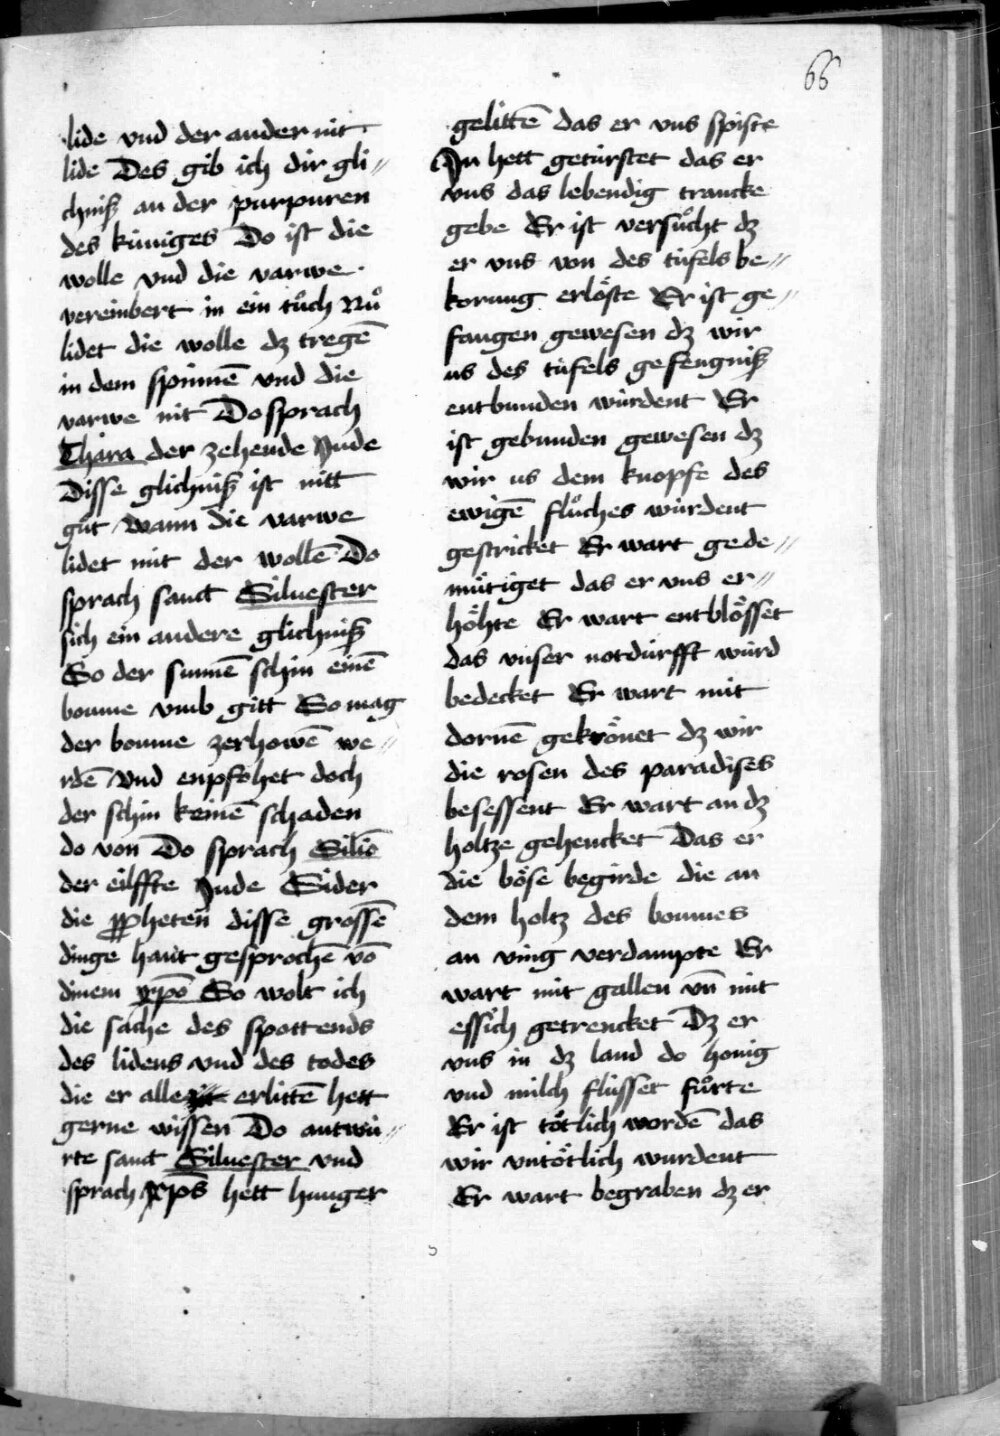 66
lide vnd der ander nit
lide Des gib ich dir gli⸗
chniß an der purpuren
des küniges Do ist die
wolle vnd die varwe
vereinbert in ein tůch Nů
lidet die wolle dz tregē
in dem spinnē vnd die
varwe nit Do sprach
Thara der zehende Jude
Disse glichniß ist nitt
gůt wann die varwe
lidet mit der wollē Do
sprach sanct Siluester
sich ein andere glichniß
So der sunnē schin einē
boume vmb gitt So mag
der boume zerhowē we⸗
rdē Vnd enpfohet doch
der schin keinē schaden
do von Do sprach Silio
der eilffte Jude Sider
die ꝓpheten disse grossē
dinge hant gesprochē vō
dinem xpo So wolt ich
die sache des spottends
des lidens vnd des todes
die er alle erlittē hett
gerne wissen Do antwu⸗
rte sanct Siluester vnd
sprach xp̄s hett hunger
gelittē das er vns spiste
Jn hett getürstet das er
vns das lebendig trancke
gebe Er ist versůcht dz
er vns von des tüfels be⸗
korung erlöste Er ist ge⸗
fangen gewesen dz wir
us des tüfels gefengniß
entbunden würdent Er
ist gebunden gewesen dz
wir us dem knopfe des
ewigē flůches würdent
gestricket Er wart gede⸗
mütiget das er vns er⸗
höhte Er wart entblösset
das vnser notdurfft würd
bedecket Er wart mit
dornē gekrönet dz wir
die rosen des paradises
besessent Er wart an dz
holtze gehencket Das er
die böse begirde die an
dem holtz des boumes
an ving verdampte Er
wart mit gallen vn̄ mit
essich getrencket Dz er
vns in dz land do honig
vnd milch flüsset fůrte
Er ist tötlich wordē das
wir vntötlich wurdent
Er wart begraben dz er